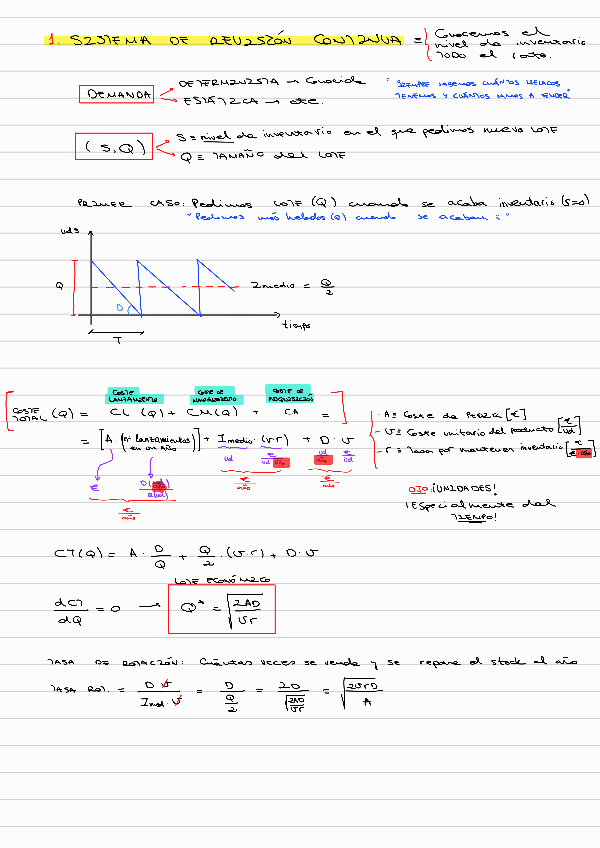 1. SISTEMA DE REVISIÓN CONTINUA = Conocemos el nivel de inventario TODO el rato.
DEMANDA
DETERMINISTA → Conocida
ESTÁTICA → cte.
"SIEMPRE SABEMOS CUÁNTOS HELADOS TENEMOS Y CUÁNTOS VAMOS A VENDER"
(s,Q)
S = nivel de inventario en el que pedimos nuevo LOTE
Q = TAMAÑO del LOTE
PRIMER CASO: Pedimos LOTE (Q) cuando se acaba inventario (s=0)
"Pedimos más helados (Q) cuando se acaban:"
uds
Q
D
I medio = Q/2
tiempo
T
COSTE LANZAMIENTO
COSTE DE MANTENIMIENTO
COSTE DE ADQUISICIÓN
COSTE TOTAL (Q) = CL (Q) + CM(Q) + CA =
= [A (nº lanzamientos en un año)] + I medio · (v r) + D · v
€
D(ud)
Q(ud)
€/año
ud
€/ud año
€/año
ud/año
€/ud
€/año
- A = Coste de PEDIR [€]
- v = Coste unitario del producto [€/ud]
- r = Tasa por mantener inventario [€/€ año]
OJO: ¡UNIDADES!
¡Especialmente del TIEMPO!
CT(Q) = A · D/Q + Q/2 · (v·r) + D·v
LOTE ECONÓMICO
dCT/dQ = 0 → Q* = √(2AD/vr)
TASA DE ROTACIÓN: Cuántas veces se vende y se repone el stock al año
TASA ROT. = D·v/I med·v = D/(Q/2) = 2D/√(2AD/vr) = √(2vrD/A)